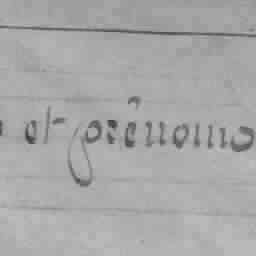 et prênoms